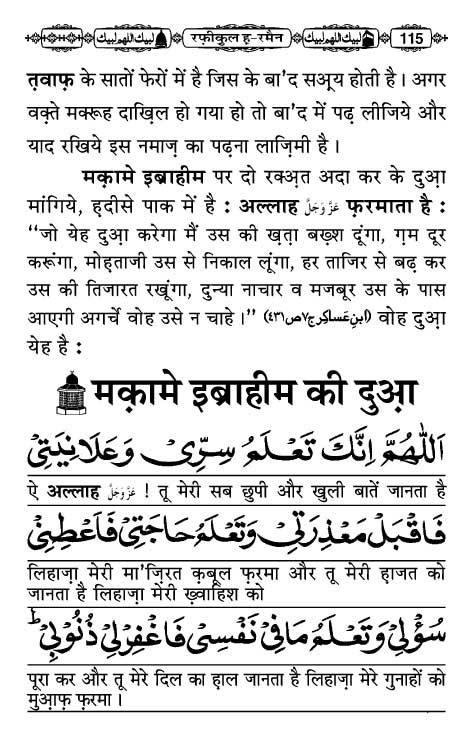 لبیك اللھم لبیك रफ़ीकुल ह-रमैन لبیك اللھم لبیك 115
त़वाफ़ के सातों फेरों में है जिस के बा'द सअ़्य होती है । अगर
वक़्ते मक्रूह दाख़िल हो गया हो तो बा'द में पढ़ लीजिये और
याद रखिये इस नमाज़ का पढ़ना लाज़िमी है ।
मक़ामे इब्राहीम पर दो रक्अ़त अदा कर के दुआ़
मांगिये, ह़दीसे पाक में है : अल्लाह عَزَّوَجَلَّ फ़रमाता है :
‘‘जो येह दुआ़ करेगा मैं उस की ख़त़ा बख़्श दूंगा, ग़म दूर
करूंगा, मोह़ताजी उस से निकाल लूंगा, हर ताजिर से बढ़ कर
उस की तिजारत रखूंगा, दुन्या नाचार व मजबूर उस के पास
आएगी अगर्चे वोह उसे न चाहे ।’’ (ابنِ عَساکِر ج۷ص۴۳۱) वोह दुआ़
येह है :
मक़ामे इब्राहीम की दुआ़
اَللّٰهُمَّ اِنَّكَ تَعْلَمُ سِرِّيْ وَعَلَانِيَتِيْ
ऐ अल्लाह عَزَّوَجَلَّ ! तू मेरी सब छुपी और खुली बातें जानता है
فَاقْبَلْ مَعْذِرَتِيْ وَتَعْلَمُ حَاجَتِيْ فَاَعْطِنِيْ
लिहाज़ा मेरी मा'ज़िरत क़बूल फ़रमा और तू मेरी ह़ाजत को
जानता है लिहाज़ा मेरी ख़्वाहिश को
سُؤْلِيْ وَتَعْلَمُ مَافِيْ نَفْسِيْ فَاغْفِرْلِيْ ذُنُوْبِيْ ؕ
पूरा कर और तू मेरे दिल का ह़ाल जानता है लिहाज़ा मेरे गुनाहों को
मुआ़फ़ फ़रमा ।